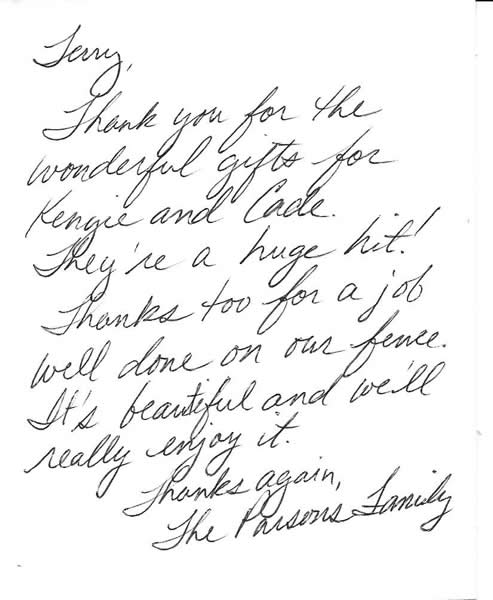 Terry,
Thank you for the
wonderful gifts for
Kengie and Cade.
They're a huge hit!
Thanks too for a job
well done on our fence.
It's beautiful and we'll
really enjoy it.
Thanks again,
The Parsons Family